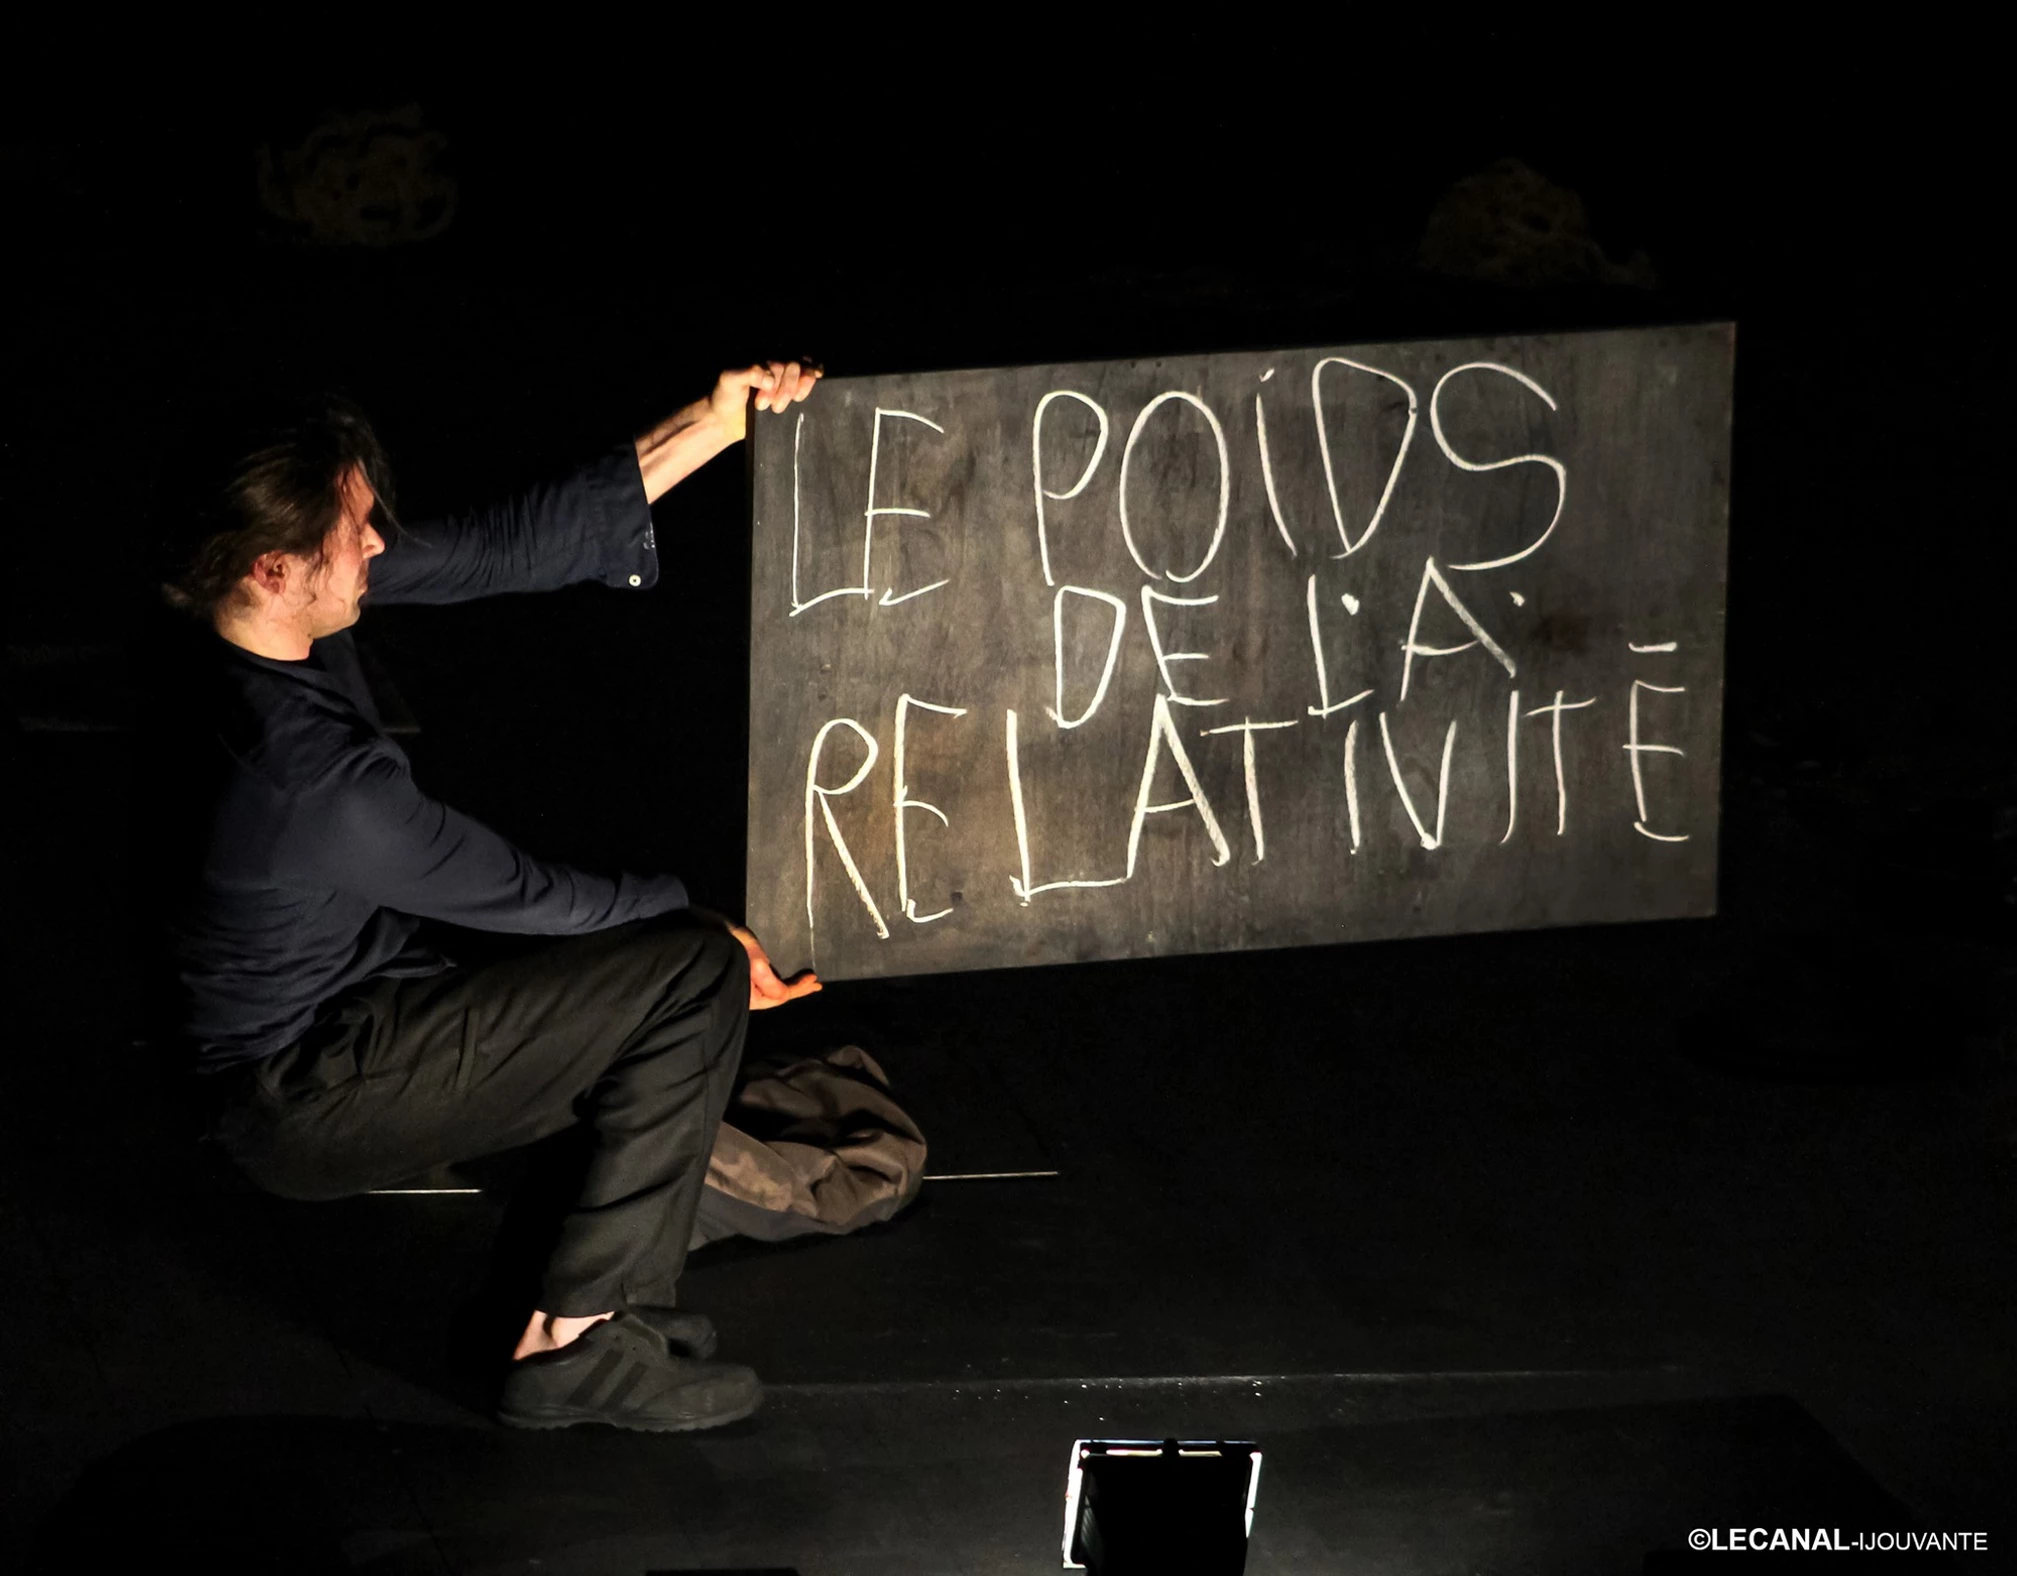 LE POiDS
DE L'A.
RELATIVITÉ
©LECANAL-IJOUVANTE